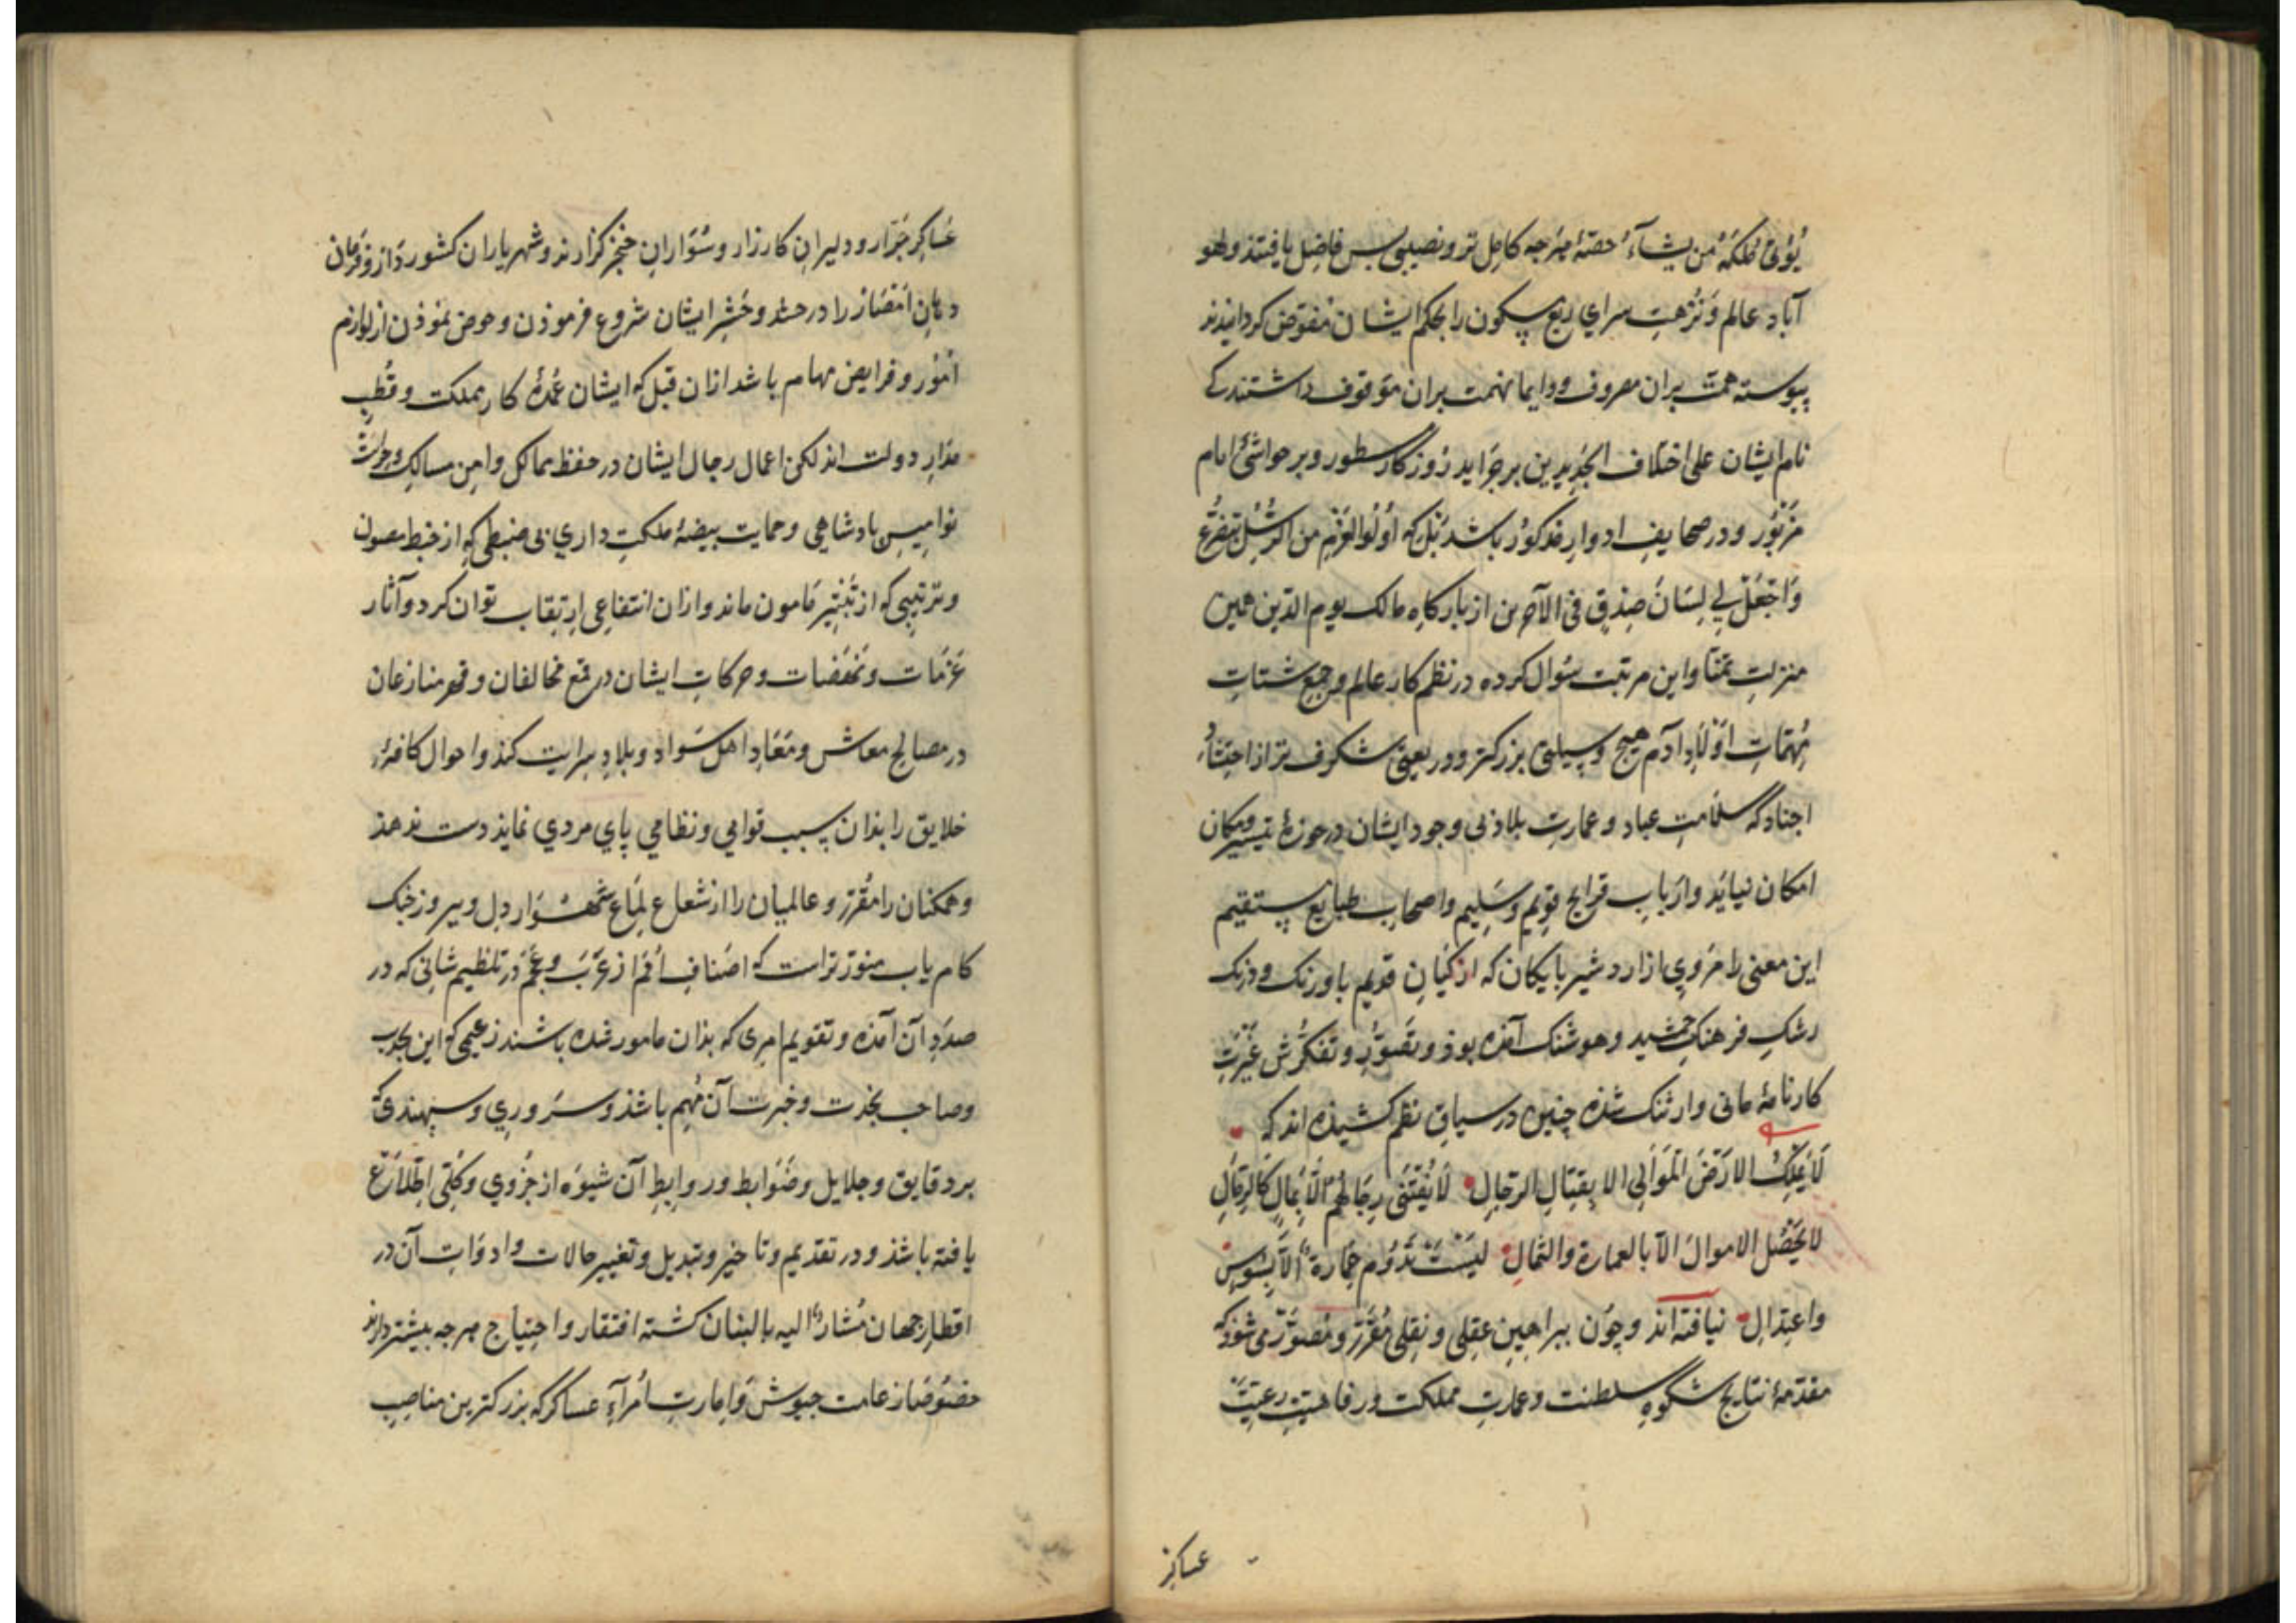 یُؤتی مُلکَهُ مَن یَشآءُ حصّهٔ هرجه کامل تر و نصیبی بس فاضل یافتند و لهو
آباد عالم و نُزهت سرای ربع مسکون را بحکم ایشان مفوّض کردانیدند
پیوسته همّت بران مصروف و دایما نهمت بران موقوف داشتند کی
نام ایشان علی اختلاف الجدیدین بر جَراید روزکار مسطور و بر حواشئ ایام
مَزبُور و در صحایف ادوار مذکوُر باشد بَل که اُولُوا العَزْم مِن الرُّسُل بتضرّع
وَاجْعَلْ لِی لِسَانَ صِدْقٍ فِی الآخِرین از بارکاه مالک یوم الدّین همین
منزلت تمنّا و این مرتبت سؤال کرده در نظم کار عالم و جمع شتاتِ
مُهمّاتِ اَوْلادِ آدم هیچ وسیلتی بزرکتر و ذریعتی شکرف تر از احتشادِ
اجناد که سلامتِ عباد و عمارتِ بلاد بی وجود ایشان در حوزهٔ تیسیر و مکان
امکان نیاید و ارباب قرایح قویم و سَلیم و اصحاب طبایع مستقیم
این معنی را مَروی از اردشیر بابکان که از کیانِ قدیم با ورنک و درنک
رشکِ فرهنکِ جمشید و هوشنک آمذه بوذ و تصوّر و تفکّرش غیرتِ
کارنامهٔ مانی و ارتنک شذه چنین در سیاقِ نظم کشیذه اند که
لا یَملِکُ الارضَ المَوالی الا بِقِتالِ الرّجالِ لا یُقْتَنَی رِجالهم الّا بمالٍ کالرِمالِ
لا یَحْصُل الاموالُ الّا بالعمارة والثمالِ لیسَتْ تَدُوْم عِمارة اِلّا بِسُوسٍ
واعتِدالِ نیافته اند و چون ببراهینِ عقلی و نقلی مُقرَّر و مُصوَّر می شوذ که
مقدّمهٔ نتایج شکوهِ سلطنت و عمارتِ مملکت و رفاهیتِ رعیّتْ
عساکر
عَساکرِ جَرّار و دلیرانِ کارزار و سَوارانِ خنجر کزارند و شهریاران کشور دار و فرمان
دهانِ اَمْصار را در حشد و حَشرِ ایشان شروع فرموذن و خوض نموذن از لوازم
اُمور و فرایض مهام باشد ازان قبل که ایشان عُمدهٔ کار مملکت و قُطبِ
مَدارِ دولت اند لکن اعمال رجال ایشان در حفظ ممالک و امنِ مسالک و حراست
نوامیسِ بادشاهی و حمایت بیضهٔ ملکت داری بی ضبطی که از خبط مصون
و ترتیبی که از تَبتیر مامون ماند و ازان انتفاعی ارتقاب توان کرد و آثار
عَزَمات و نَهَضات و حرکاتِ ایشان در قمع مخالفان و قهر منازعان
در مصالح معاش و مَعادِ اهل سَواد و بلاد سرایت کند و احوال کافهٔ
خلایق را بذان سبب قوامی و نظامی پای مردی نماید دست ندهد
و همکنان را مُقرّر و عالمیان را از شعاع لِماع شهسوار دل و پیروز جنک
کام یاب منوّر تر است که اصنافِ اُمم از عَرَب و عَجَم در تنظیم شانی که در
صدَدِ آن آمذه و تقویم امری که بذان مامور شده باشند زعیمی که ابن بجدت
و صاحب نجدت و خبرت آن مُهم باشذ و سَروری و سپهبذی که
بر دقایق و جلایل و ضوابط و روابطِ آن شیوَه از جُزوی و کلّی اِطّلاع
یافته باشذ و در تقدیم و تاخیر و تبدیل و تغییر حالات و ادوات آن در
اقطارِ جهان مُشارٌ الیه بالبنان کشته افتقار و احتیاج هرجه بیشتر دارند
خصُوصًا زعامت جیوش و اِمارتِ اُمراءِ عساکر که بزرکترین مناصبِ